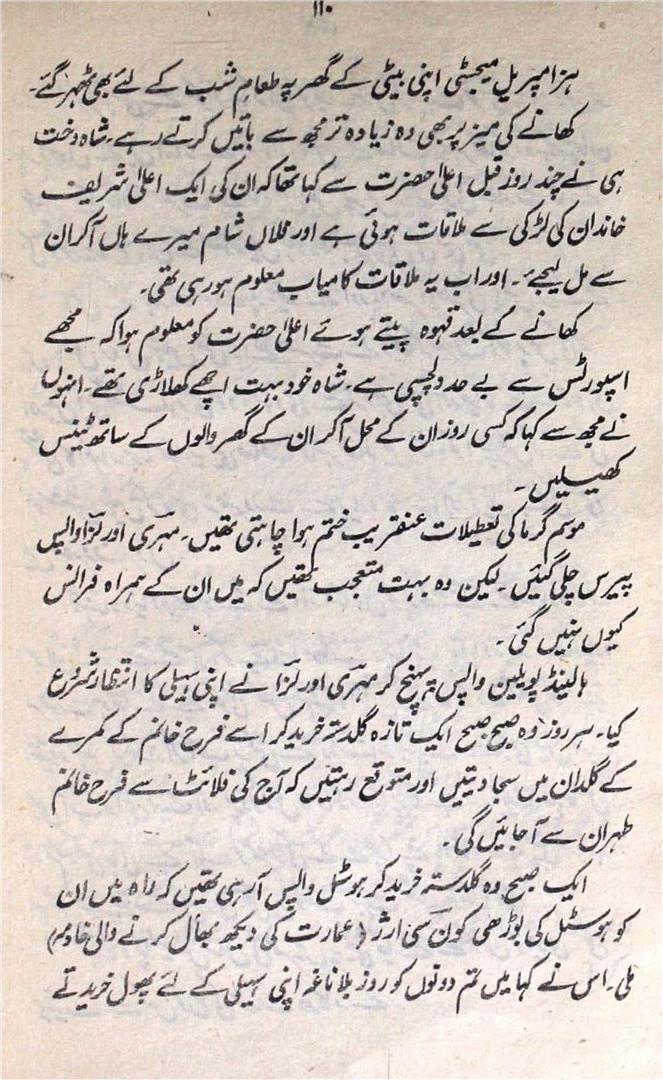 ۱۱۰
ہزامپریل میجسٹی اپنی بیٹی کے گھر پہ طعامِ شب کے لئے بھی ٹھہر گئے۔
کھانے کی میز پر بھی وہ زیادہ تر مجھ سے باتیں کرتے رہے۔ شاہ دخت
ہی نے چند روز قبل اعلیٰ حضرت سے کہا تھا کہ ان کی ایک اعلیٰ شریف
خاندان کی لڑکی سے ملاقات ہوئی ہے اور فلاں شام میرے ہاں آکر ان
سے مل لیجئے۔ اور اب یہ ملاقات کامیاب معلوم ہو رہی تھی۔
کھانے کے بعد قہوہ پیتے ہوئے اعلیٰ حضرت کو معلوم ہوا کہ مجھے
اسپورٹس سے بے حد دلچسپی ہے۔ شاہ خود بہت اچھے کھلاڑی تھے۔ انہوں
نے مجھ سے کہا کہ کسی روز ان کے محل آکر ان کے گھر والوں کے ساتھ ٹینس
کھیلیں۔
موسم گرما کی تعطیلات عنقریب ختم ہوا چاہتی تھیں۔ مہری اور لزا واپس
پیرس چلی گئیں۔ لیکن وہ بہت متعجب تھیں کہ میں ان کے ہمراہ فرانس
کیوں نہیں گئی۔
ہالینڈ پویلین واپس پہنچ کر مہری اور لزا نے اپنی سہیلی کا انتظار شروع
کیا۔ ہر روز وہ صبح صبح ایک تازہ گلدستہ خرید کر اسے فرح خانم کے کمرے
کے گلدان میں سجا دیتیں اور متوقع رہتیں کہ آج کی فلائٹ سے فرح خانم
طہران سے آجائیں گی۔
ایک صبح وہ گلدستہ خرید کر ہوسٹل واپس آرہی تھیں کہ راہ میں ان
کو ہوسٹل کی بوڑھی کون سی ارژ (عمارت کی دیکھ بھال کرنے والی خادمہ)
ملی۔ اس نے کہا میں تم دونوں کو روز بلاناغہ اپنی سہیلی کے لئے پھول خریدتے